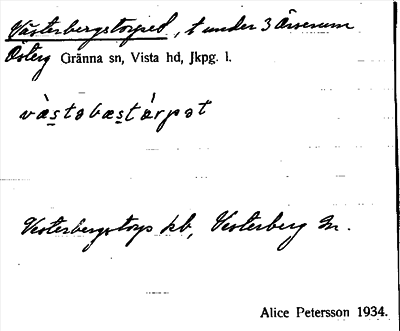 Västerbergstorpet, t under 3 Årserum
Österg Gränna sn, Vista hd, Jkpg. l.
væ̀stəbæstárpət
Vesterbergstorps kb, Vesterberg Gn.
Alice Petersson 1934.